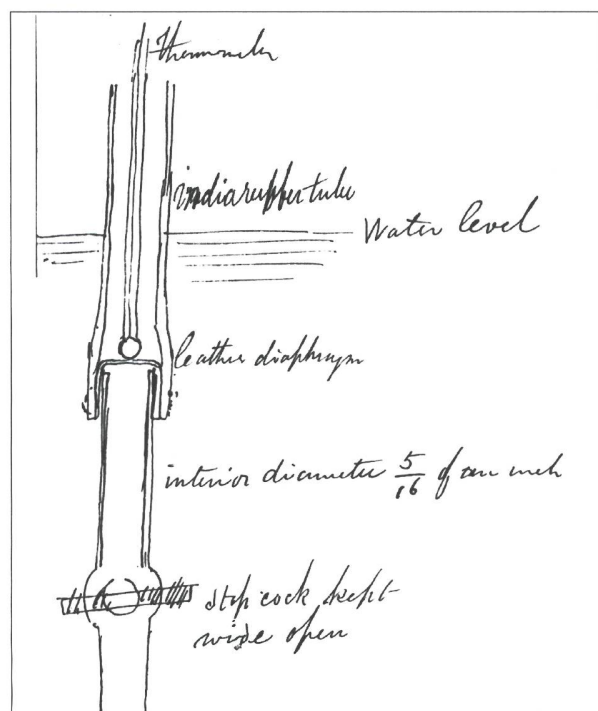 thermometer
indiarubber tube
Water level
leather diaphragm
interior diameter 5/16 of an inch
stop cock kept
wide open